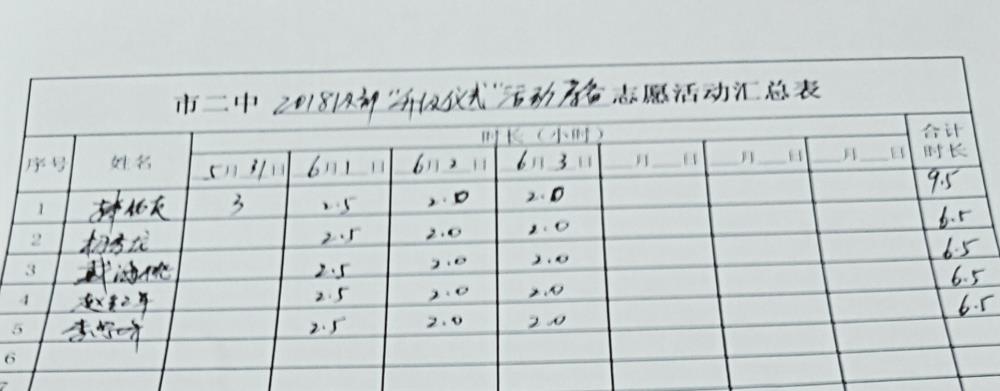 市二中 2018级部“升级仪式”活动准备 志愿活动汇总表
序号 姓名 时长(小时) 合计时长
5月31日 6月1日 6月2日 6月3日 月 日 月 日 月 日
1 3 2.5 2.0 2.0 9.5
2 2.5 2.0 2.0 6.5
3 2.5 2.0 2.0 6.5
4 2.5 2.0 2.0 6.5
5 2.5 2.0 2.0 6.5
6
7